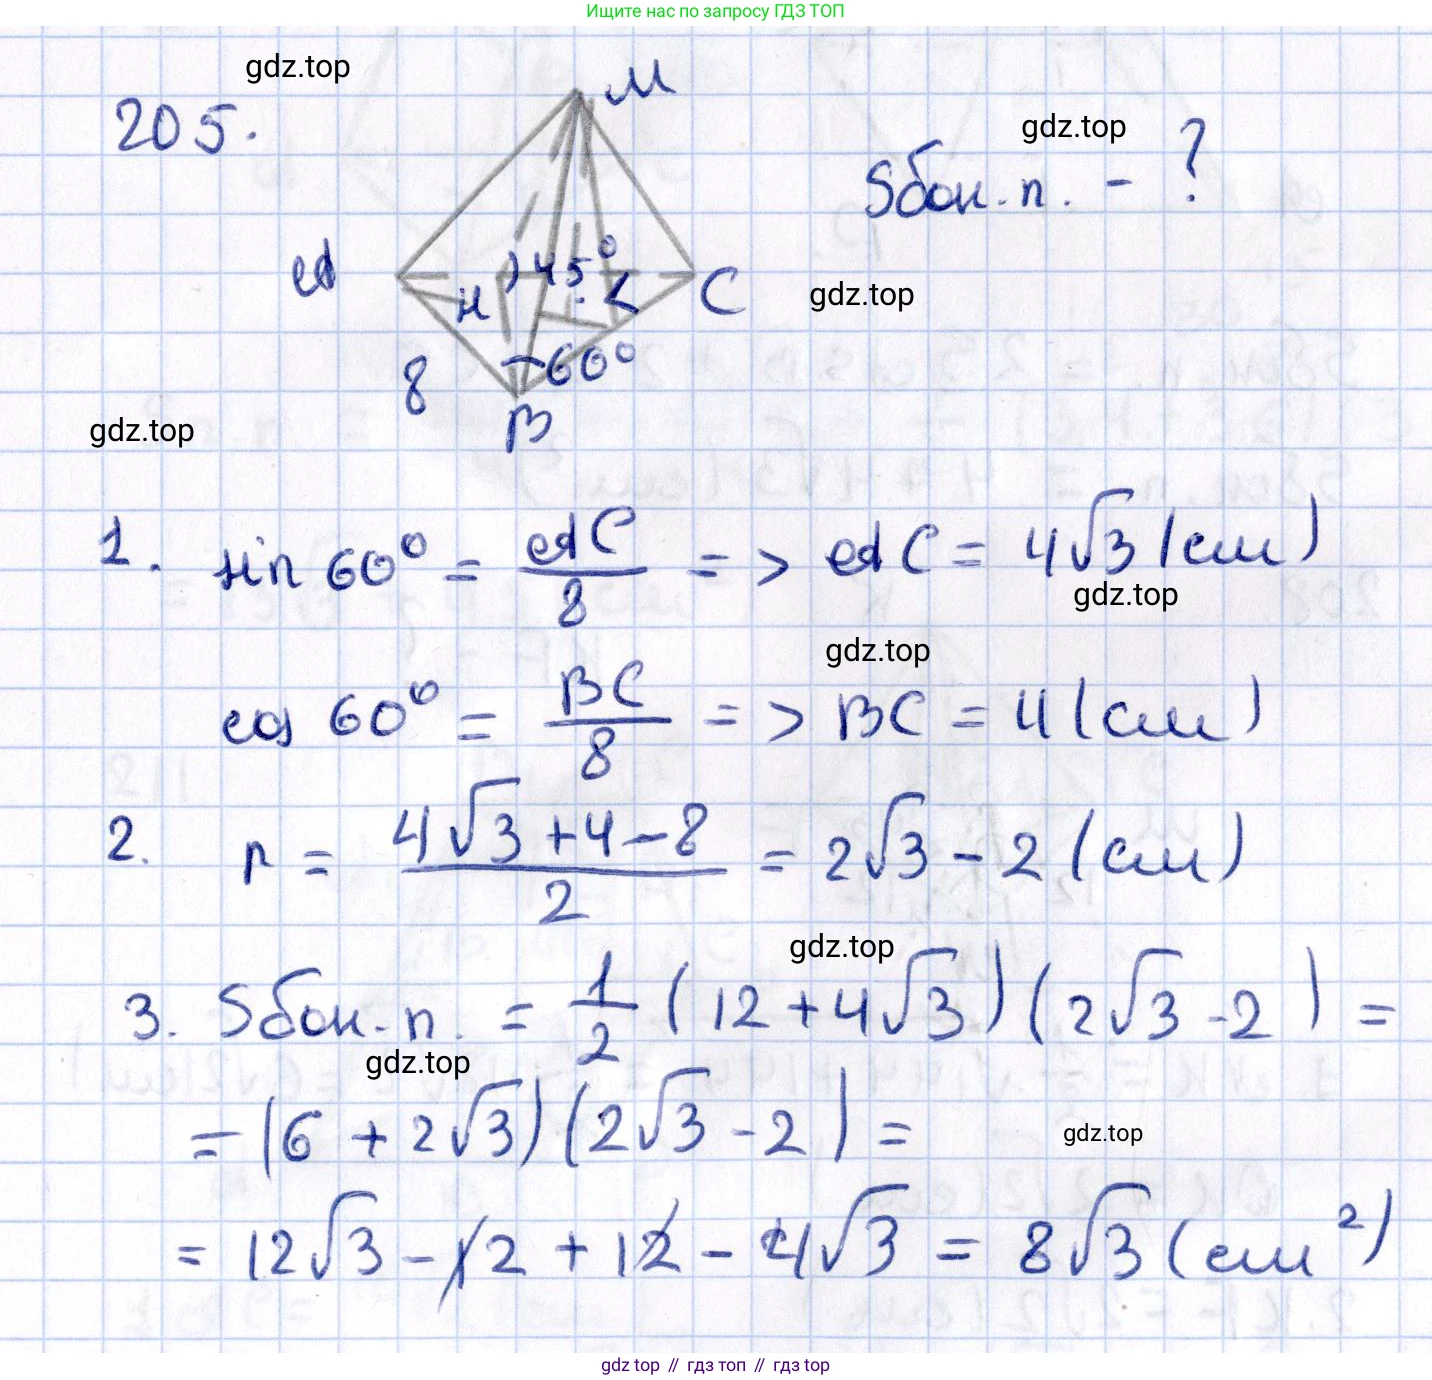 Ищите нас по запросу ГДЗ ТОП
gdz.top
205.
M
Sбок.п. - ?
gdz.top
A
H
45°
L
C
gdz.top
8
60°
B
gdz.top
1. sin 60° = AC/8 => AC = 4√3 (см)
gdz.top
gdz.top
cos 60° = BC/8 => BC = 4 (см)
2. r = (4√3 + 4 - 8)/2 = 2√3 - 2 (см)
gdz.top
3. Sбок.п. = 1/2 (12 + 4√3)(2√3 - 2) =
gdz.top
= (6 + 2√3)(2√3 - 2) =
gdz.top
= 12√3 - 12 + 12 - 4√3 = 8√3 (см²)
gdz top // гдз топ // gdz top